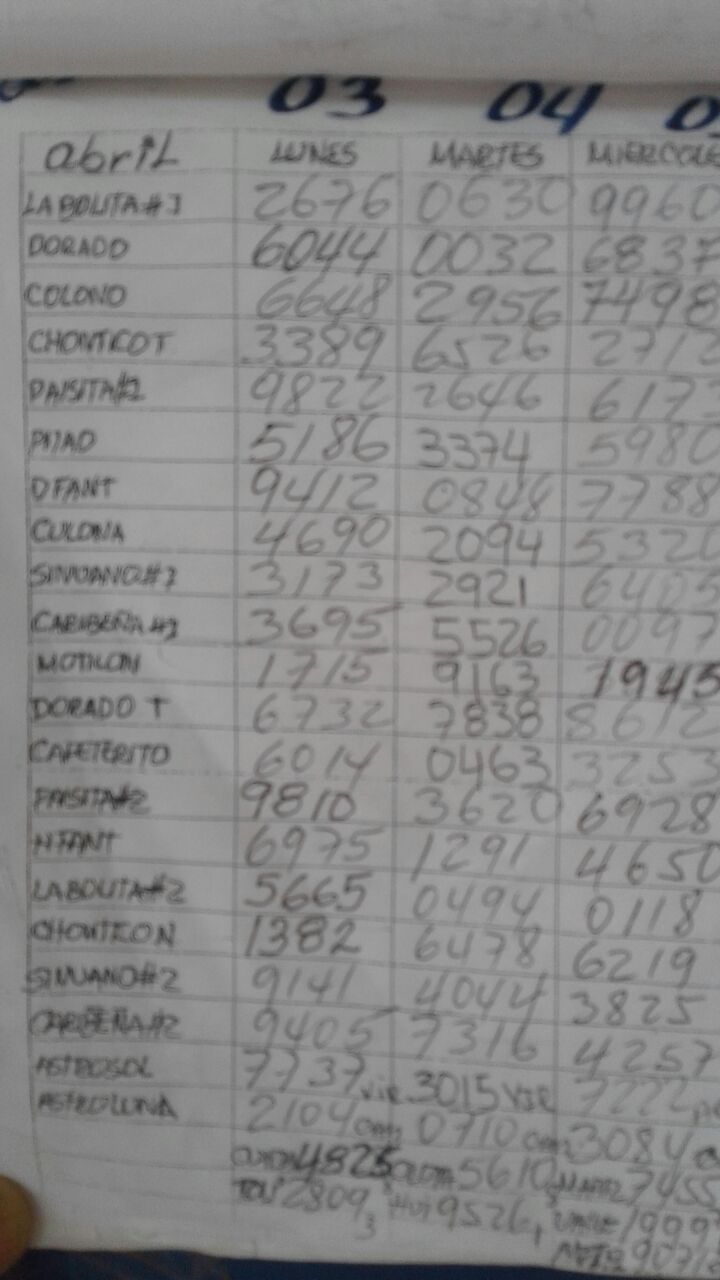 03 04 0
abril LUNES MARTES MIERCOLE
LA BOLITA#1 2676 0630 9960
DORADO 6044 0032 6837
COLONO 6648 2956 7498
CHONTICO T 3389 6526 2712
PAISITA#2 9822 2646 6173
PIJAO 5186 3374 5980
D FANT 9412 0848 7788
CULONA 4690 2094 5320
SINUANO#1 3173 2921 6485
CARIBEÑA#1 3695 5526 0097
MOTILON 1715 9163 1945
DORADO T 6732 7838 8612
CAFETERITO 6014 0463 3253
PAISITA#2 9810 3620 6928
N FANT 6975 1291 4650
LABOLITA#2 5665 0494 0118
CHONTICO N 1382 6478 6219
SINUANO#2 9141 4044 3825
CARIBEÑA#2 9405 7316 4257
ASTROSOL 7737 vie 3015 VIR 7222
ASTROLUNA 2104 0710 3084
4825 5610 7455
2809 3 9526 1 1999